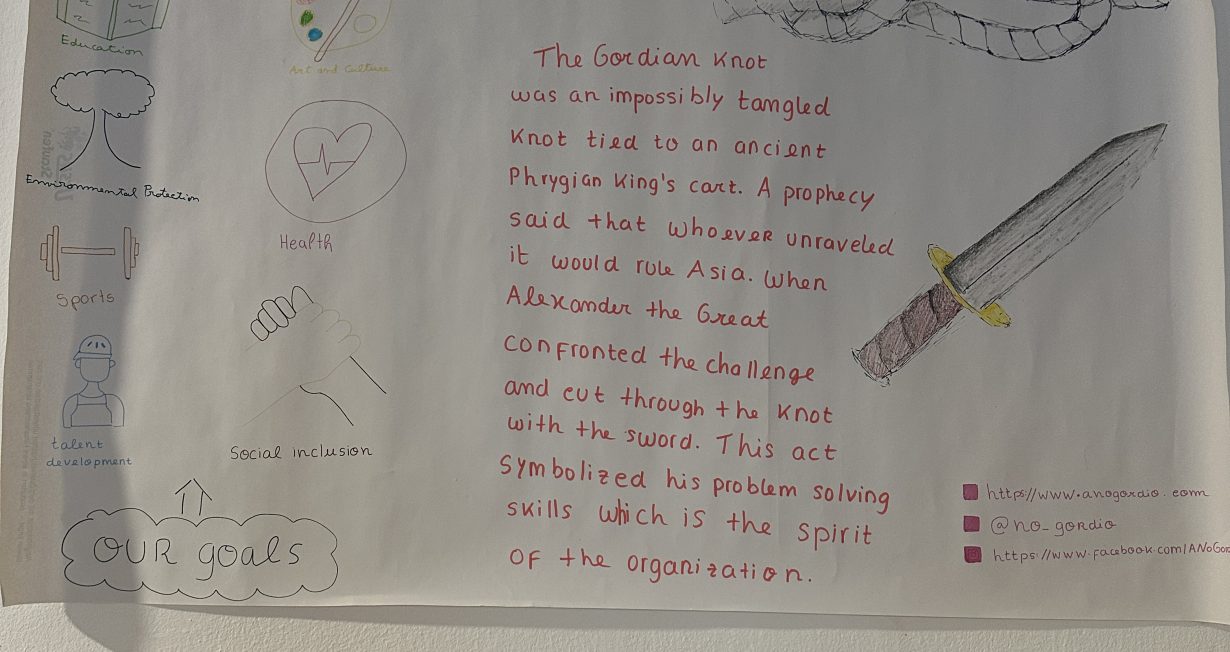 Education
Art and Culture
Environmental Protection
Health
Sports
Social inclusion
talent
development
OUR goals
The Gordian Knot
was an impossibly tangled
Knot tied to an ancient
Phrygian King's cart. A prophecy
said that whoever unraveled
it would rule Asia. When
Alexander the Great
confronted the challenge
and cut through the Knot
with the sword. This act
Symbolized his problem solving
skills which is the spirit
OF the organization.
https://www.anogordio.com
@no_gordio
https://www.facebook.com/ANoGor